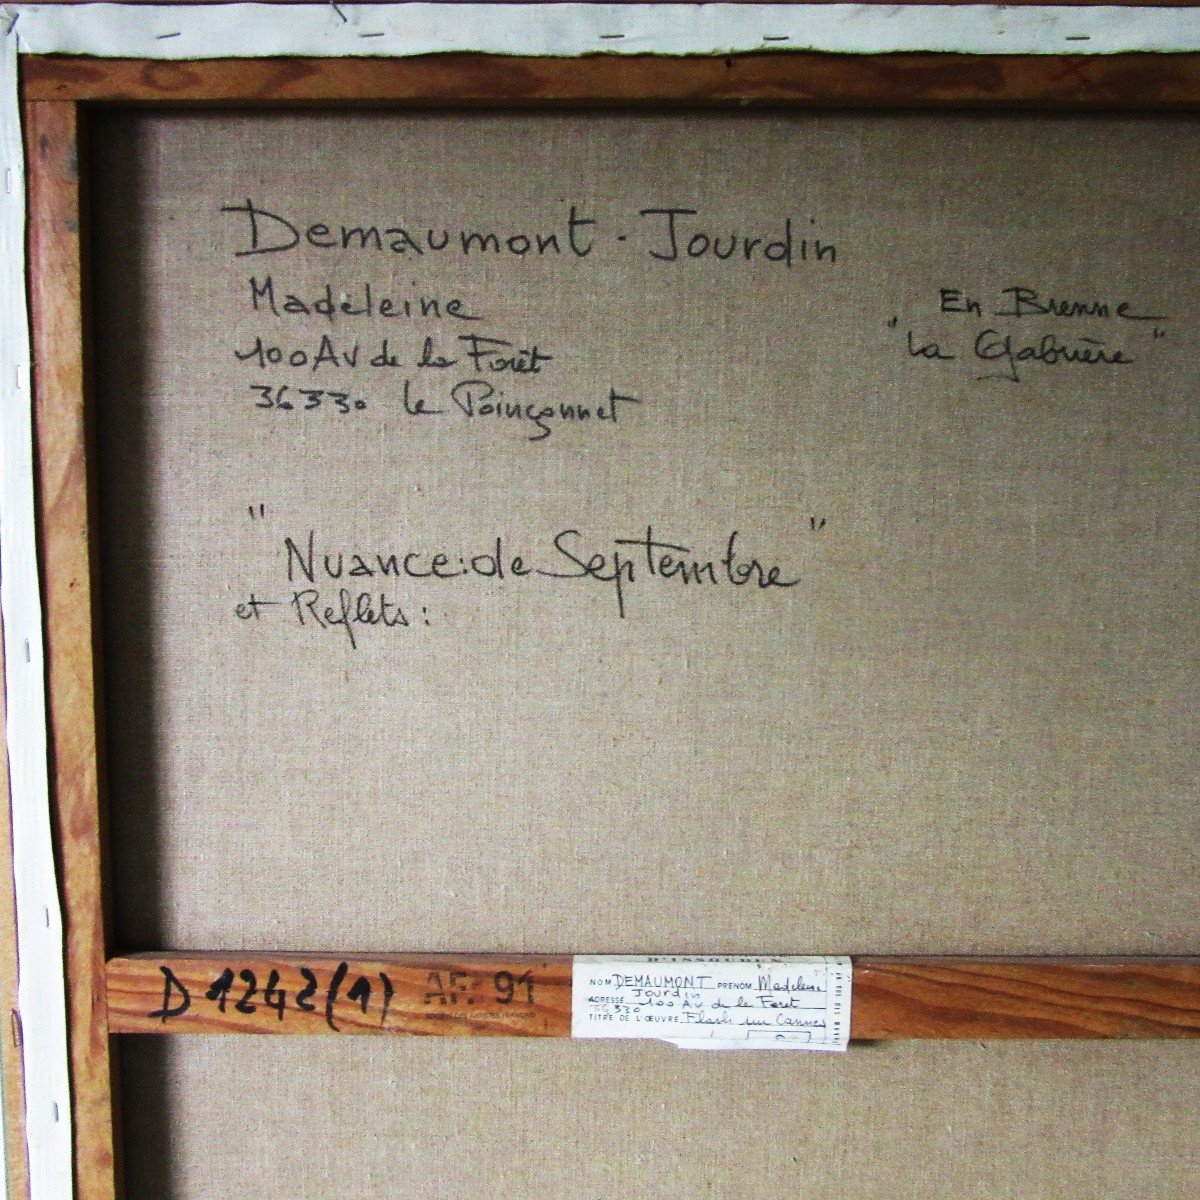 Demaumont - Jourdin
Madeleine
100 Av de la Forêt
36330 le Poinçonnet
En Brenne
"La Gabrière"
"Nuance:de Septembre"
et Reflets:
D 1242(1)
AF. 91
NOM DEMAUMONT PRENOM Madeleine
Jourdin
ADRESSE 100 Av de la Foret
36330
TITRE DE L'ŒUVRE Flash sur Cannes